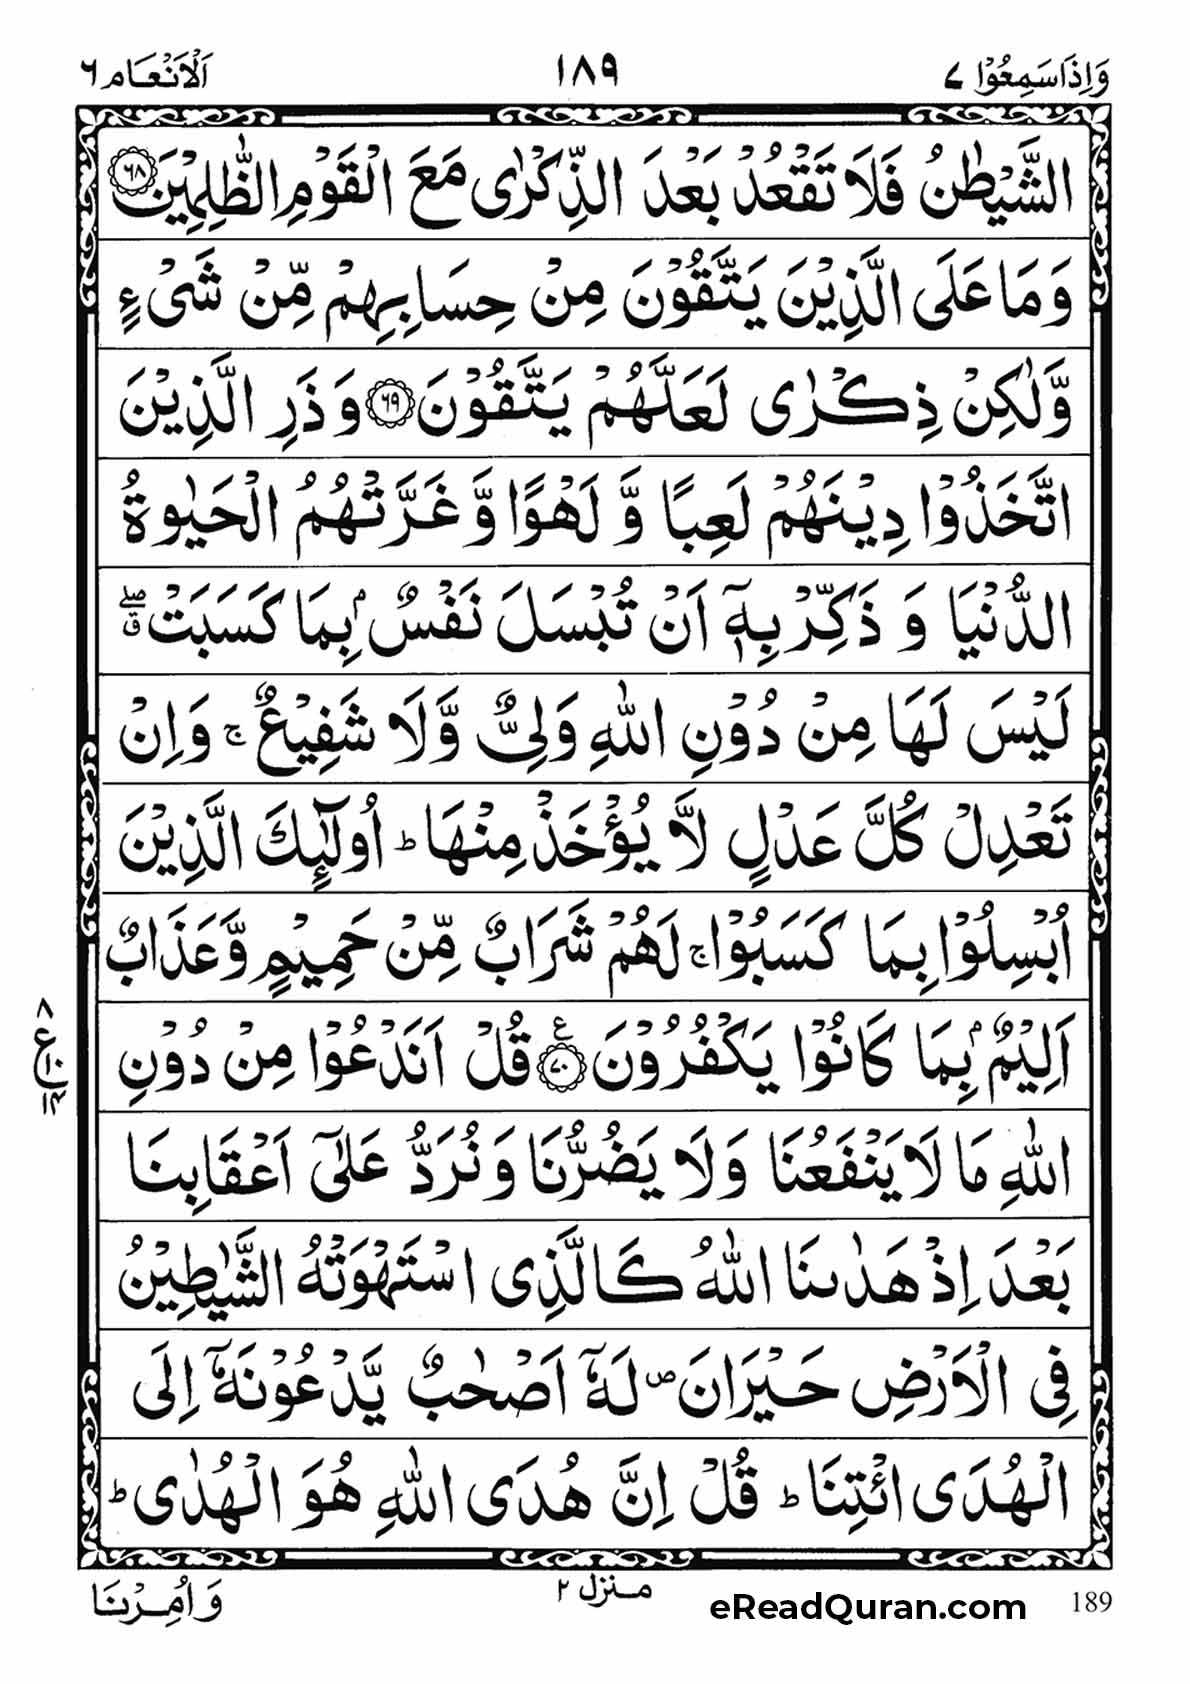 وَاِذَاسَمِعُوْا ٧
١٨٩
اَلْاَنْعَام ٦
الشَّيْطٰنُ فَلَا تَقْعُدْ بَعْدَ الذِّكْرٰى مَعَ الْقَوْمِ الظّٰلِمِيْنَ ٦٨
وَمَا عَلَى الَّذِيْنَ يَتَّقُوْنَ مِنْ حِسَابِهِمْ مِّنْ شَىْءٍ
وَّلٰكِنْ ذِكْرٰى لَعَلَّهُمْ يَتَّقُوْنَ ٦٩ وَذَرِ الَّذِيْنَ
اتَّخَذُوْا دِيْنَهُمْ لَعِبًا وَّ لَهْوًا وَّ غَرَّتْهُمُ الْحَيٰوةُ
الدُّنْيَا وَ ذَكِّرْ بِهٖۤ اَنْ تُبْسَلَ نَفْسٌۢ بِمَا كَسَبَتْ ۖق
لَيْسَ لَهَا مِنْ دُوْنِ اللّٰهِ وَلِىٌّ وَّلَا شَفِيْعٌ ۚ وَاِنْ
تَعْدِلْ كُلَّ عَدْلٍ لَّا يُؤْخَذْ مِنْهَا ؕ اُولٰٓئِكَ الَّذِيْنَ
اُبْسِلُوْا بِمَا كَسَبُوْا ۚ لَهُمْ شَرَابٌ مِّنْ حَمِيْمٍ وَّعَذَابٌ
اَلِيْمٌۢ بِمَا كَانُوْا يَكْفُرُوْنَ ٧٠ ع قُلْ اَنَدْعُوْا مِنْ دُوْنِ
اللّٰهِ مَا لَا يَنْفَعُنَا وَلَا يَضُرُّنَا وَنُرَدُّ عَلٰٓى اَعْقَابِنَا
بَعْدَ اِذْ هَدٰىنَا اللّٰهُ كَالَّذِى اسْتَهْوَتْهُ الشَّيٰطِيْنُ
فِى الْاَرْضِ حَيْرَانَ ص لَهٗۤ اَصْحٰبٌ يَّدْعُوْنَهٗۤ اِلَى
الْهُدَى ائْتِنَا ؕ قُلْ اِنَّ هُدَى اللّٰهِ هُوَ الْهُدٰى ؕ
وَاُمِرْنَا
منزل ٢
eReadQuran.com
189